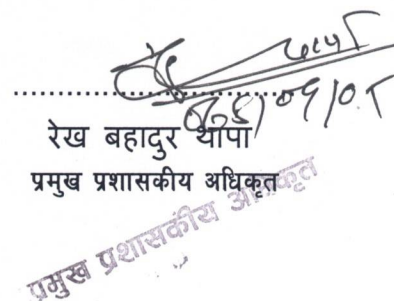 रेख बहादुर थापा
प्रमुख प्रशासकीय अधिकृत
प्रमुख प्रशासकीय अधिकृत